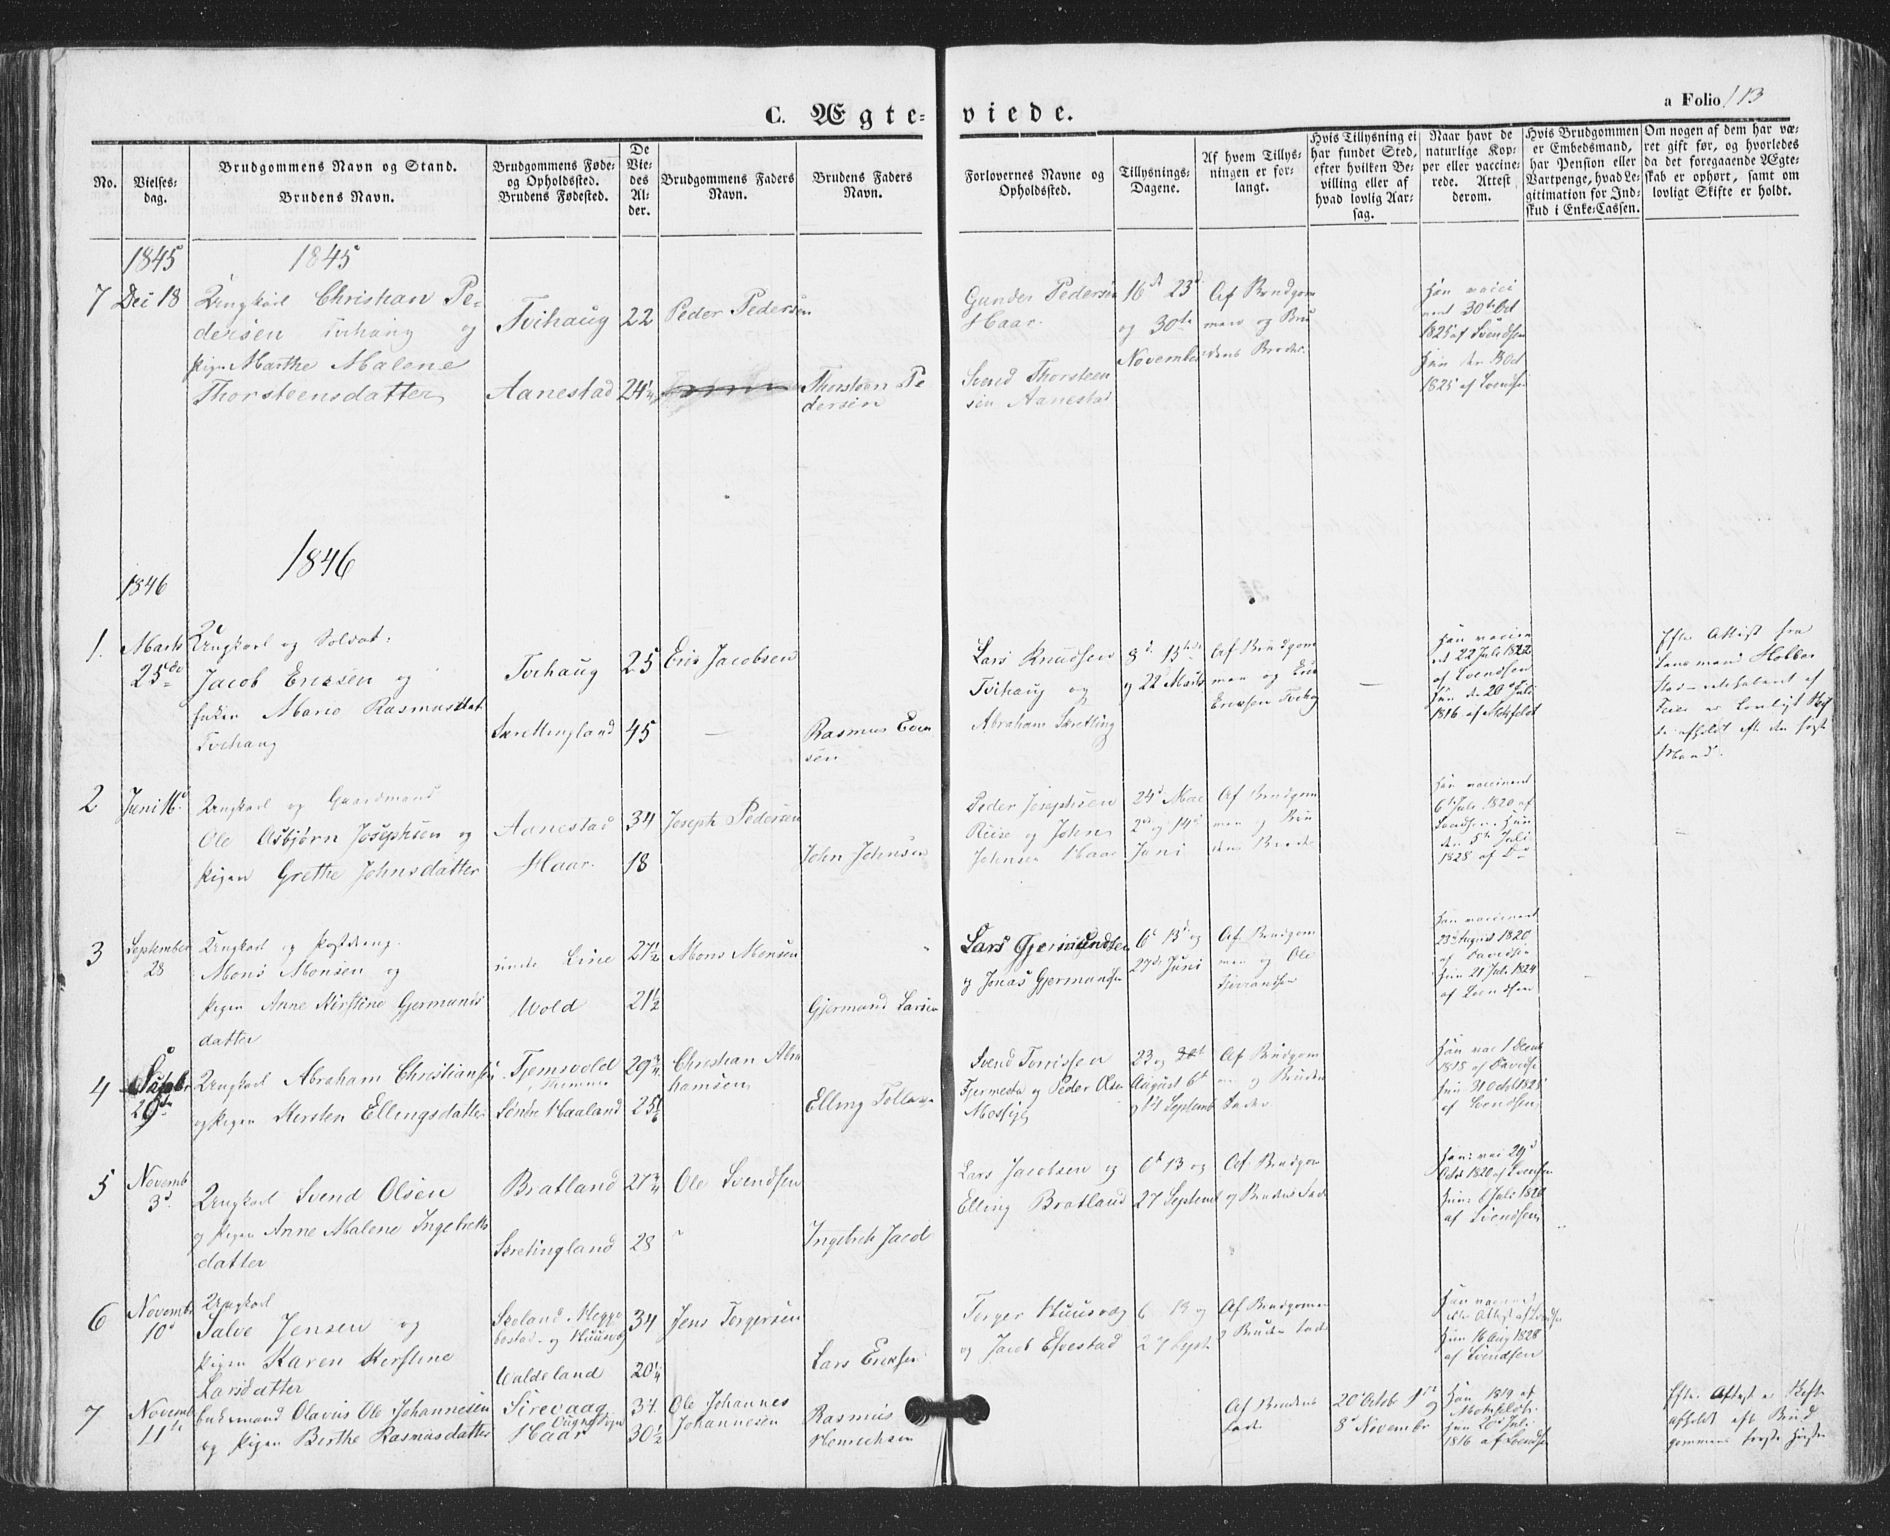 C. Ægteviede.
a Folio 113
No.
Vielses-
dag.
Brudgommens Navn og Stand.
Brudens Navn.
Brudgommens Føde-
og Opholdssted.
Brudens Fødested.
De
Vie-
des
Al-
der.
Brudgommens Faders
Navn.
Brudens Faders
Navn.
Forlovernes Navne og
Opholdssted.
Tillysnings-
Dagene.
Af hvem Tillys-
ningen er for-
langt.
Hvis Tillysning ei
har fundet Sted,
efter hvilken Be-
villing eller af
hvad lovlig Aar-
sag.
Naar havt de
naturlige Kop-
per eller vaccine-
rede. Attest
derom.
Hvis Brudgommen
er Embedsmand,
har Pension eller
Vartpenge, hvad Le-
gitimation for Ind-
skud i Enke-Cassen.
Om nogen af dem har væ-
ret gift før, og hvorledes
da det foregaaende Ægte-
skab er ophørt, samt om
lovligt Skifte er holdt.
1845
1845
7 Dec 18
Ungkarl Christian Pe-
dersen Tvihaug og
Pigen Marthe Malene
Thorsteensdatter
Tvihaug 22
Aanestad 24 1/4
Peder Pedersen
Thorsteen Pe
dersen
Gunder Pedersen
Haar.
Svend Thorsteen
sen Aanestad
16d 23d
og 30te
November
Af Brudgom
men og Bru
dens Broder.
Han vacci
neret 30te Oct
1825 af Svendsen
Hun den 3 Oct
1825 af Svendsen
1846
1846
1. Marts
25de
Ungkarl og Soldat:
Jacob Ericsen og
Enken Mario Rasmusdat
Tvihaug
Tvihaug 25
Skrettingland 45
Eric Jacobsen
Rasmus Even
sen
Lars Knudsen
Tvihaug og
Abraham Skretting
8d 15de
og 22 Marts
Af Brudgom
men og
Ericsen Tvihaug
Han vaccin
eret 22 Juli 1822
af Svendsen
Hun den 20d Juli
1816 af Motzfeldt
Efter Attest fra
Lensmand
er lovligt Skif
te afholdt efter den første
Mand.
2 Juni 16d
Ungkarl og Gaardmand
Ole Asbjørn Josephsen og
Pigen Grethe Johnsdatter
Aanestad 34
Haar. 18
Joseph Pedersen
John Johnsen
Peder Josephsen
og John
Johnsen Haar
24d Mai
2den og 14d
Juni
Af Brudgom
men og Bru
dens Broder
Han vaccineret
6te Juli 1820 af
Svendsen. Hun
den 5te Juli
1828 af Do
3 September
28
Ungkarl og Postdreng.
Mons Monsen og
Pigen Anne Kirstine Gjermunds
datter
27 1/2
Wold 21 1/2
Mons Monsen
Gjermund Larsen
Lars Gjermundsen
og Jonas Gjermundsen
6d 13d og
27de Juni
Af Brudgom
men og Ole
Han vaccineret
23d August 1820
af Davidsen
Hun 21 Juli 1824
af Svendsen
4 Septbr
29de
Ungkarl Abraham Christiansen
og Pigen Kersten Ellingsdatter
Tjemsvold 29 3/4
Søndre Haaland 25
Christian Abra
hamsen
Elling Tollevs
Svend Torrissen
og Peder Olsen
Mossige
23 og
August 6t
og 14 Septemb
Af Brudgom
men og Brudens
Fader
Han vac 1 Decemb
1818 af Davidsen
Hun 31 Octob 1825
af Svendsen
5 Novemb
3d
Ungkarl Svend Olsen
og Pigen Anne Malene Ingebrets
datter
Bratland 27 3/4
Skretingland 28
Ole Svendsen
Ingebret Jacob
Lars Jacobsen og
Elling Bratland
6d 13 og
27 Septemb
Af Brudgom
og Brudens Fader
Han vac 29d
Octob 1820 af Svendsen
Hun Juli 1820
af Svendsen
6 Novemb
10d
Ungkarl
Salve Jensen og
Pigen Karen Kerstine
Larsdatter
Skoland Hegge
bostad og Kuusvæg 34
Waldeland 20 1/4
Jens Torgersen
Lars Ericsen
Torger Kuusvæg
og Jacob Efvestad
6 13 og
27 Sept
Af Brudgommen
og Brudens Fader
Han vaccineret
efter Attest af Svendsen
Hun 16 Aug 1828
af Svendsen
7 Novemb
11te
Enkemand Olavus Ole Johannesen
og Pigen Berthe Rasmusdatter
Sirevaag 37
Haar 30 1/2
Ole Johannes
Johannesen
Rasmus
Henrichsen
Af Brudens
Fader
20 Octob 1 og
8d Novembr
Han 1819 af
Motzfeldt
Hun 20d Juli
1816 af Svendsen
Efter Attest er Skifte
afholdt efter Brud
gommens første Hustru